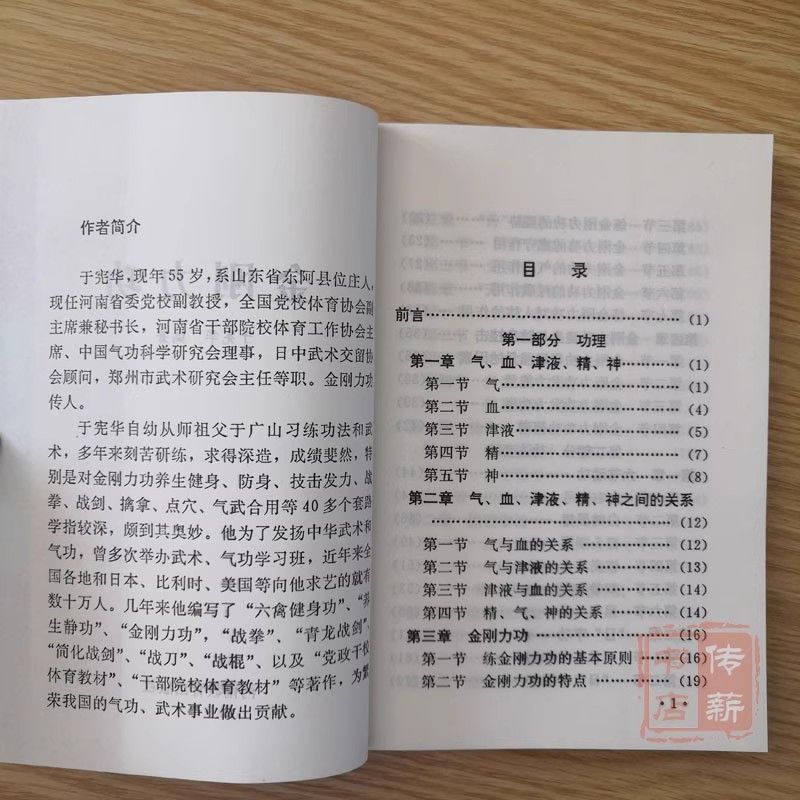 作者简介
于宪华，现年55岁，系山东省东阿县位庄人，
现任河南省委党校副教授，全国党校体育协会副
主席兼秘书长，河南省干部院校体育工作协会主
席、中国气功科学研究会理事，日中武术交留协
会顾问，郑州市武术研究会主任等职。金刚力功
传人。
于宪华自幼从师祖父于广山习练功法和武
术，多年来刻苦研练，求得深造，成绩斐然，特
别是对金刚力功养生健身、防身、技击发力、战
拳、战剑、擒拿、点穴、气武合用等40多个套路
学指较深，颇到其奥妙。他为了发扬中华武术和
气功，曾多次举办武术、气功学习班，近年来全
国各地和日本、比利时、美国等向他求艺的就有
数十万人。几年来他编写了“六禽健身功”、“养
生静功”、“金刚力功”，“战拳”、“青龙战剑”、
“简化战剑”、“战刀”、“战棍”、以及“党政干校
体育教材”、“干部院校体育教材”等著作，为繁
荣我国的气功、武术事业做出贡献。
目 录
前言……………………………………(1)
第一部分 功理
第一章 气、血、津液、精、神……(1)
第一节 气……………………………(1)
第二节 血……………………………(4)
第三节 津液…………………………(5)
第四节 精……………………………(7)
第五节 神……………………………(8)
第二章 气、血、津液、精、神之间的关系
……………………………………(12)
第一节 气与血的关系………………(12)
第二节 气与津液的关系……………(13)
第三节 津液与血的关系……………(14)
第四节 精、气、神的关系…………(14)
第三章 金刚力功……………………(16)
第一节 练金刚力功的基本原则……(16)
第二节 金刚力功的特点……………(19)
·1·
传薪
书店